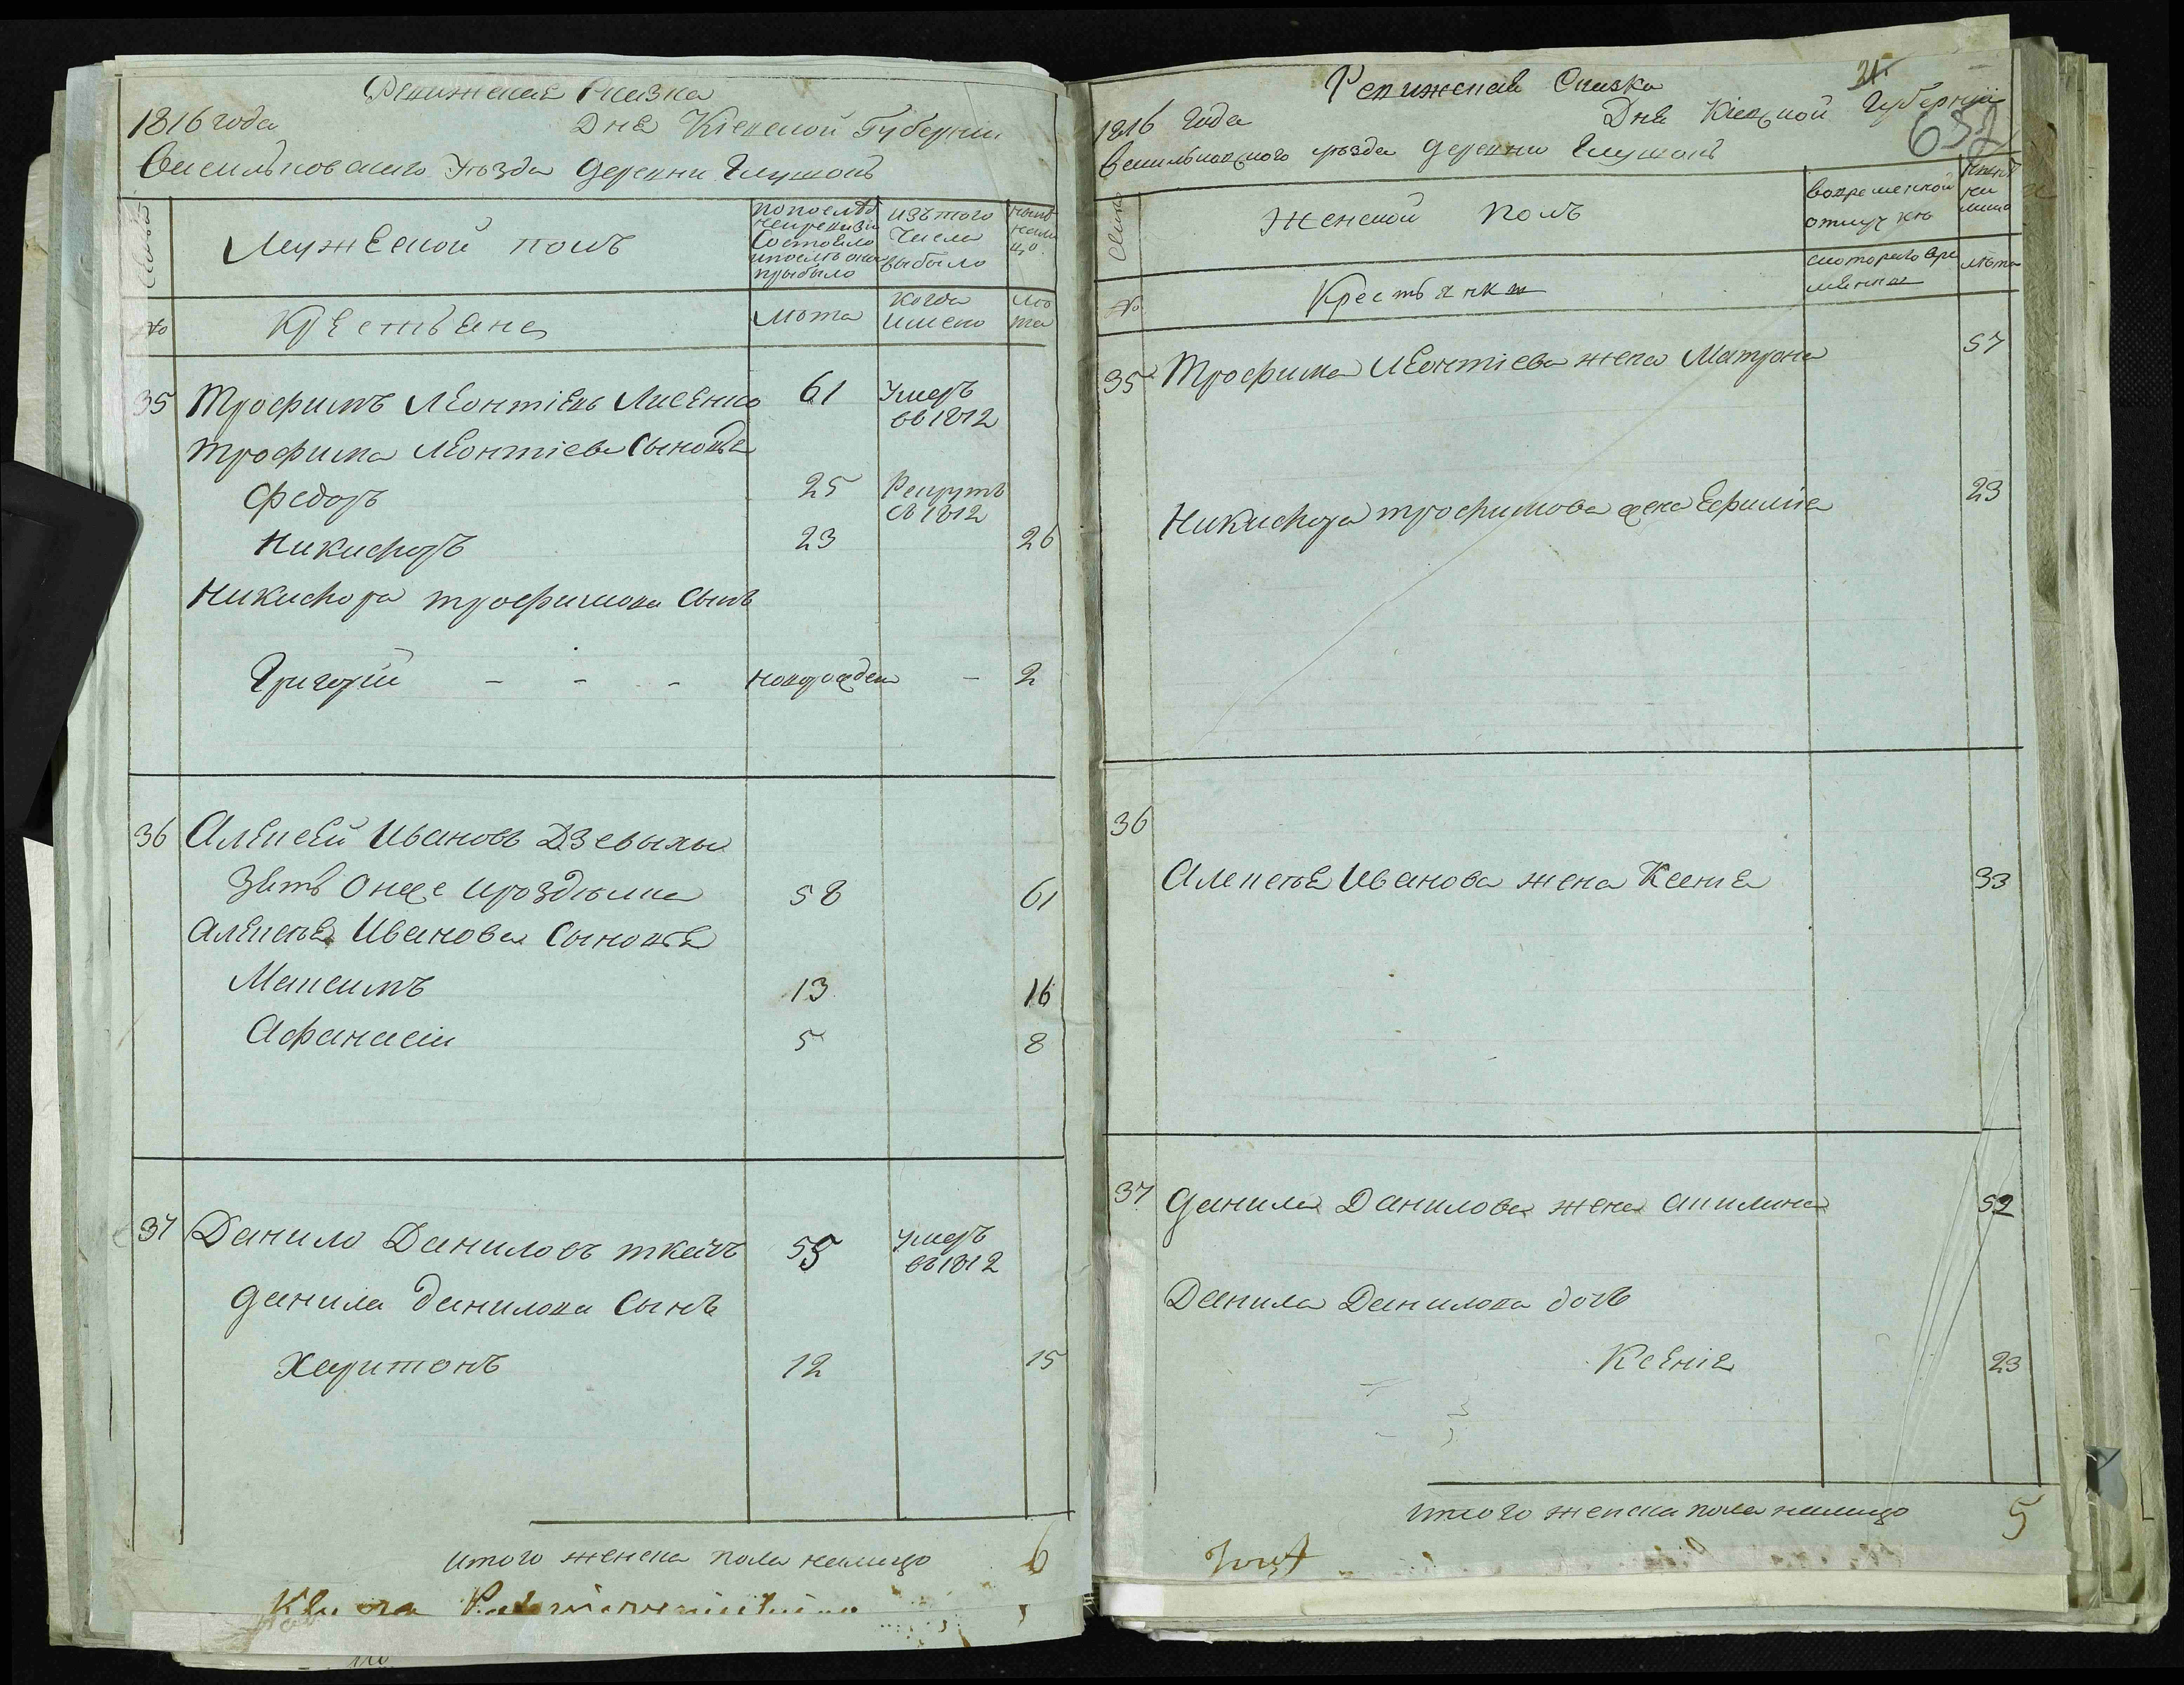 Ревижская Сказка
1816 года Дня Кіевской Губерніи
Василковского уезда деревни Глушокъ
Семьи
Мужеской полъ
попослѣд
ней ревизіи
Состояло
ипослѣ онаго
прыбыло
изъ того
Числа
выбыло
ныне
нали
цо
№
Крестьяне
Лѣта
Когда
имено
лѣ
та
35 Трофимъ Леонтіевъ Лисенко 61 Умеръ
въ 1812
Трофима Леонтіева Сыновья
Федоръ 25 Рекрутъ
въ 1812
Никифоръ 23 26
Никифора трофимова Сынъ
Григорій - - - новорожден - 2
36 Алексей Ивановъ
Зять 58 61
Алексея Иванова Сыновья
Максимъ 13 16
Афанасій 5 8
37 Данило Даниловъ ткачъ 55 умеръ
въ 1812
данила данилова Сынъ
Харитонъ 12 15
итого женска пола налицо 6
Ревижская Сказка
31
1816 Года Дня Кіевской Губерніи
652
Василковского уезда деревни Глушокъ
Семьи
Женской полъ
вовременной
отлучкѣ
ныне
на
лицо
№
Крестьянки
скоторого вре
менны
лѣта
35 Трофима Леонтіева жена Матрона 57
Никифора трофимова жена Ефимія 23
36
Алексея Иванова жена Ксенія 33
37 данила Данилова жена акилина 52
Данила Данилова дочь
Ксенія 23
итого женска пола налицо 5